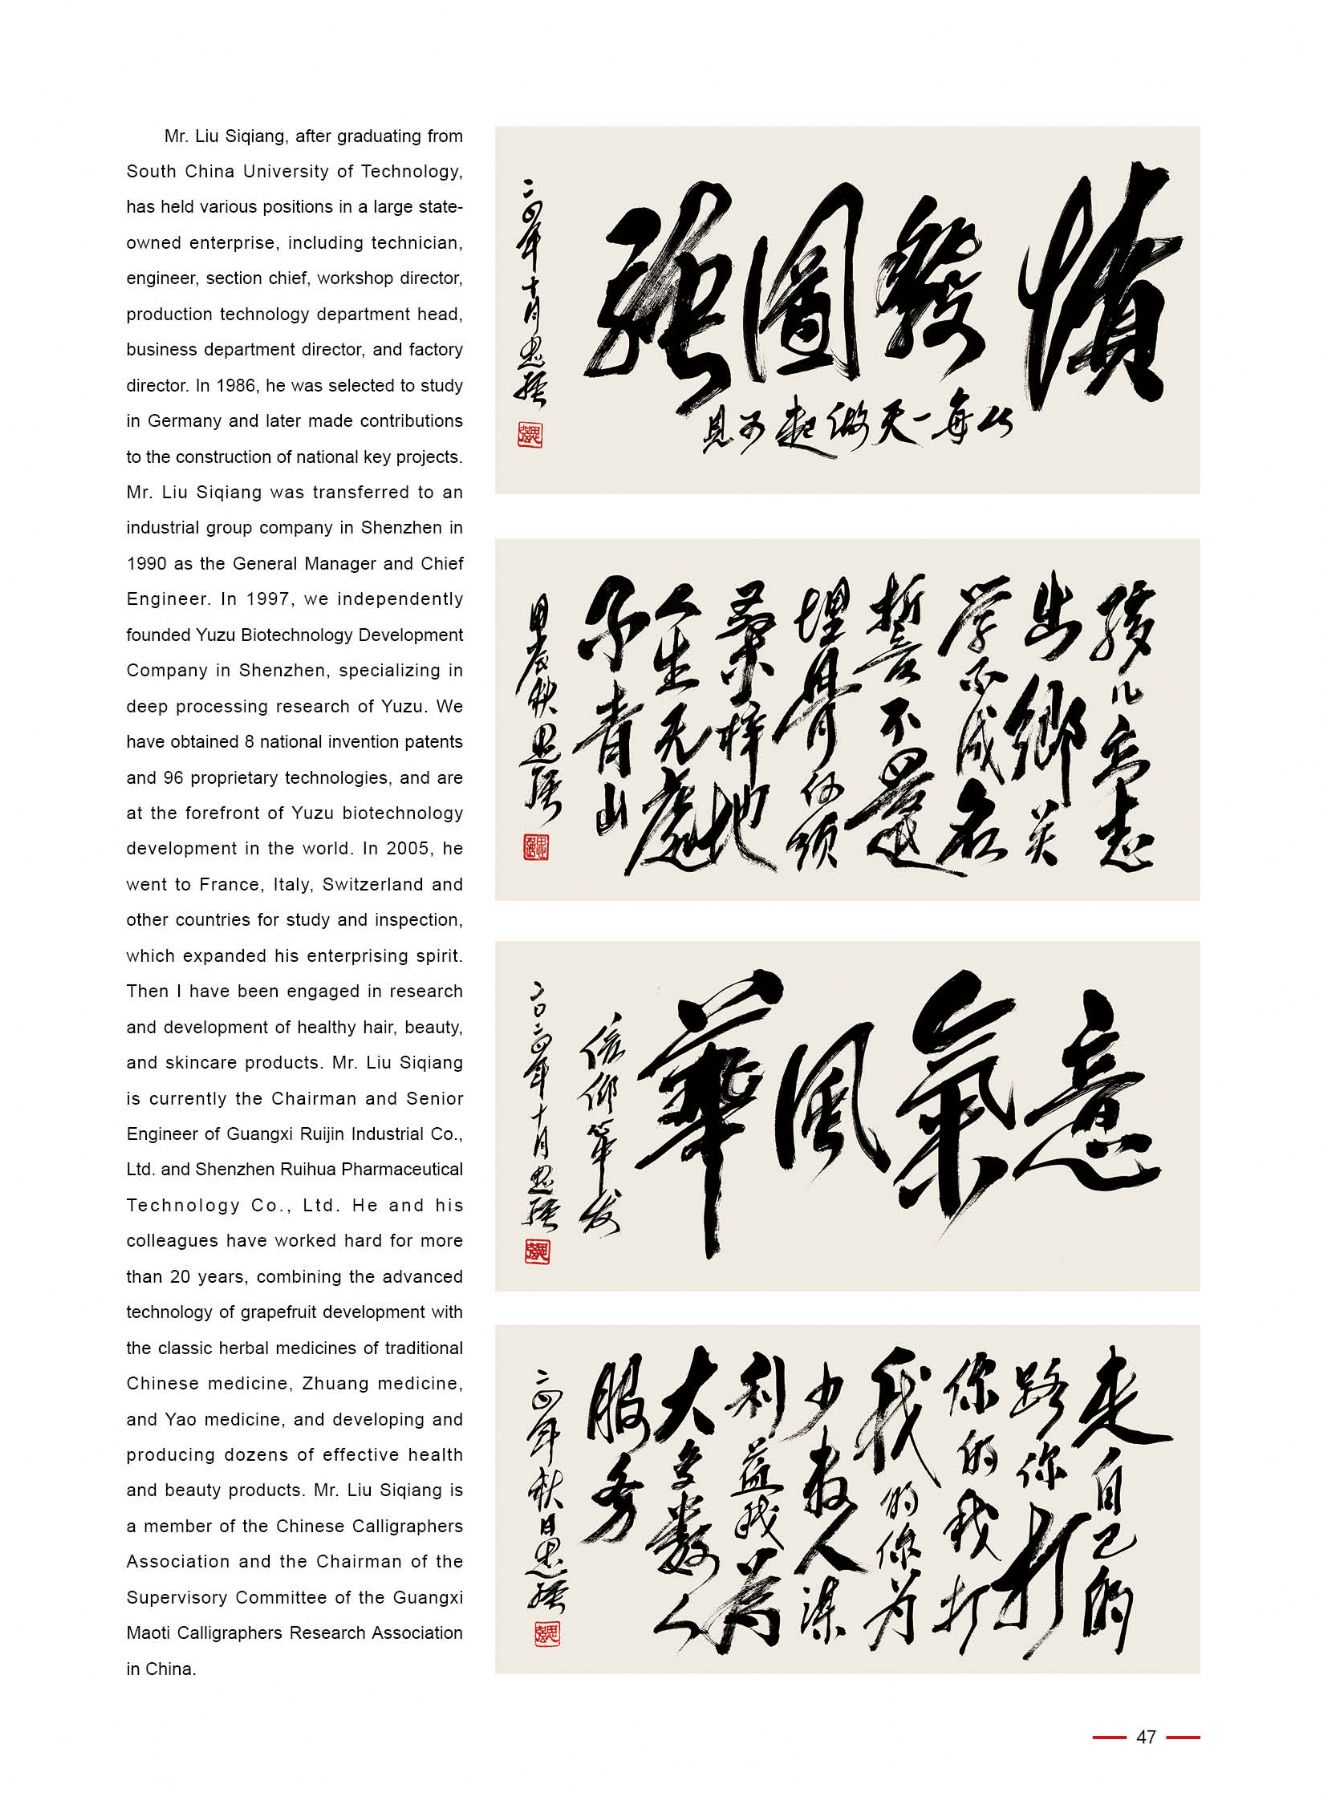 Mr. Liu Siqiang, after graduating from
South China University of Technology,
has held various positions in a large state-
owned enterprise, including technician,
engineer, section chief, workshop director,
production technology department head,
business department director, and factory
director. In 1986, he was selected to study
in Germany and later made contributions
to the construction of national key projects.
Mr. Liu Siqiang was transferred to an
industrial group company in Shenzhen in
1990 as the General Manager and Chief
Engineer. In 1997, we independently
founded Yuzu Biotechnology Development
Company in Shenzhen, specializing in
deep processing research of Yuzu. We
have obtained 8 national invention patents
and 96 proprietary technologies, and are
at the forefront of Yuzu biotechnology
development in the world. In 2005, he
went to France, Italy, Switzerland and
other countries for study and inspection,
which expanded his enterprising spirit.
Then I have been engaged in research
and development of healthy hair, beauty,
and skincare products. Mr. Liu Siqiang
is currently the Chairman and Senior
Engineer of Guangxi Ruijin Industrial Co.,
Ltd. and Shenzhen Ruihua Pharmaceutical
Technology Co., Ltd. He and his
colleagues have worked hard for more
than 20 years, combining the advanced
technology of grapefruit development with
the classic herbal medicines of traditional
Chinese medicine, Zhuang medicine,
and Yao medicine, and developing and
producing dozens of effective health
and beauty products. Mr. Liu Siqiang is
a member of the Chinese Calligraphers
Association and the Chairman of the
Supervisory Committee of the Guangxi
Maoti Calligraphers Research Association
in China.
憤發圖強
每一天做起可見
二四年十月思强
孩儿立志
出鄉关
学不成名
誓不還
埋骨何须
桑梓地
人生无處
不青山
甲辰秋思强
意氣風華
信仰笔发
二〇二四年十月思强
走自己的
路你打
你的我打
我的你为
少数人谋
利益我为
大多数人
服务
二四年秋日思强
47